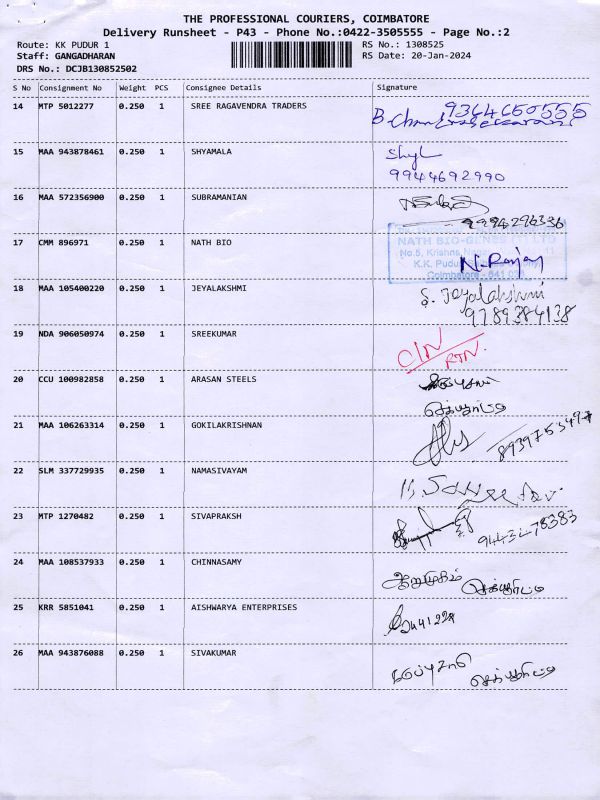 THE PROFESSIONAL COURIERS, COIMBATORE
Delivery Runsheet - P43 - Phone No.:0422-3505555 - Page No.:2
Route: KK PUDUR 1 RS No.: 1308525
Staff: GANGADHARAN RS Date: 20-Jan-2024
DRS No.: DCJB130852502
S No Consignment No Weight PCS Consignee Details Signature
14 MTP 5012277 0.250 1 SREE RAGAVENDRA TRADERS 9364650555
15 MAA 943878461 0.250 1 SHYAMALA Shyl
9944692990
16 MAA 572356900 0.250 1 SUBRAMANIAN
9994296336
17 CMM 896971 0.250 1 NATH BIO NATH BIO-GENES
No.5, Krishna
K.K. Pudur
Coimbatore - 641 038
18 MAA 105400220 0.250 1 JEYALAKSHMI S. Jeyalakshmi
9789384138
19 NDA 906050974 0.250 1 SREEKUMAR C/N
RTN.
20 CCU 100982858 0.250 1 ARASAN STEELS
செக்யூரிட்டி
21 MAA 106263314 0.250 1 GOKILAKRISHNAN 8939753497
22 SLM 337729935 0.250 1 NAMASIVAYAM
23 MTP 1270482 0.250 1 SIVAPRAKSH 9443278383
24 MAA 108537933 0.250 1 CHINNASAMY ஆறுமுகம் செக்யூரிட்டி
25 KRR 5851041 0.250 1 AISHWARYA ENTERPRISES
26 MAA 943876088 0.250 1 SIVAKUMAR செக்யூரிட்டி